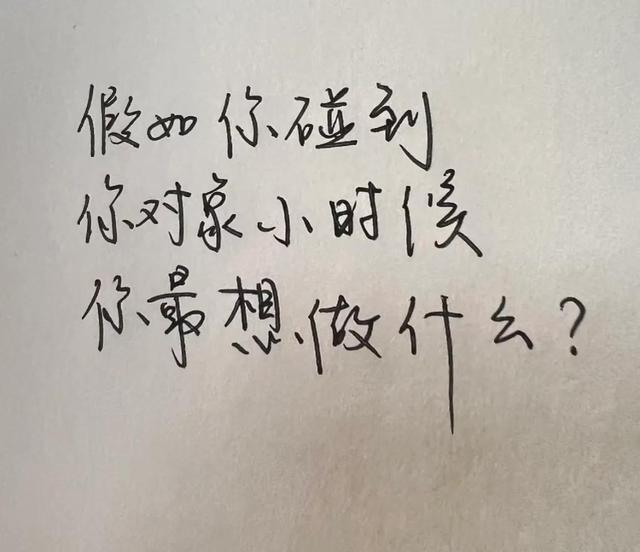 假如你碰到
你对象小时候
你最想做什么?